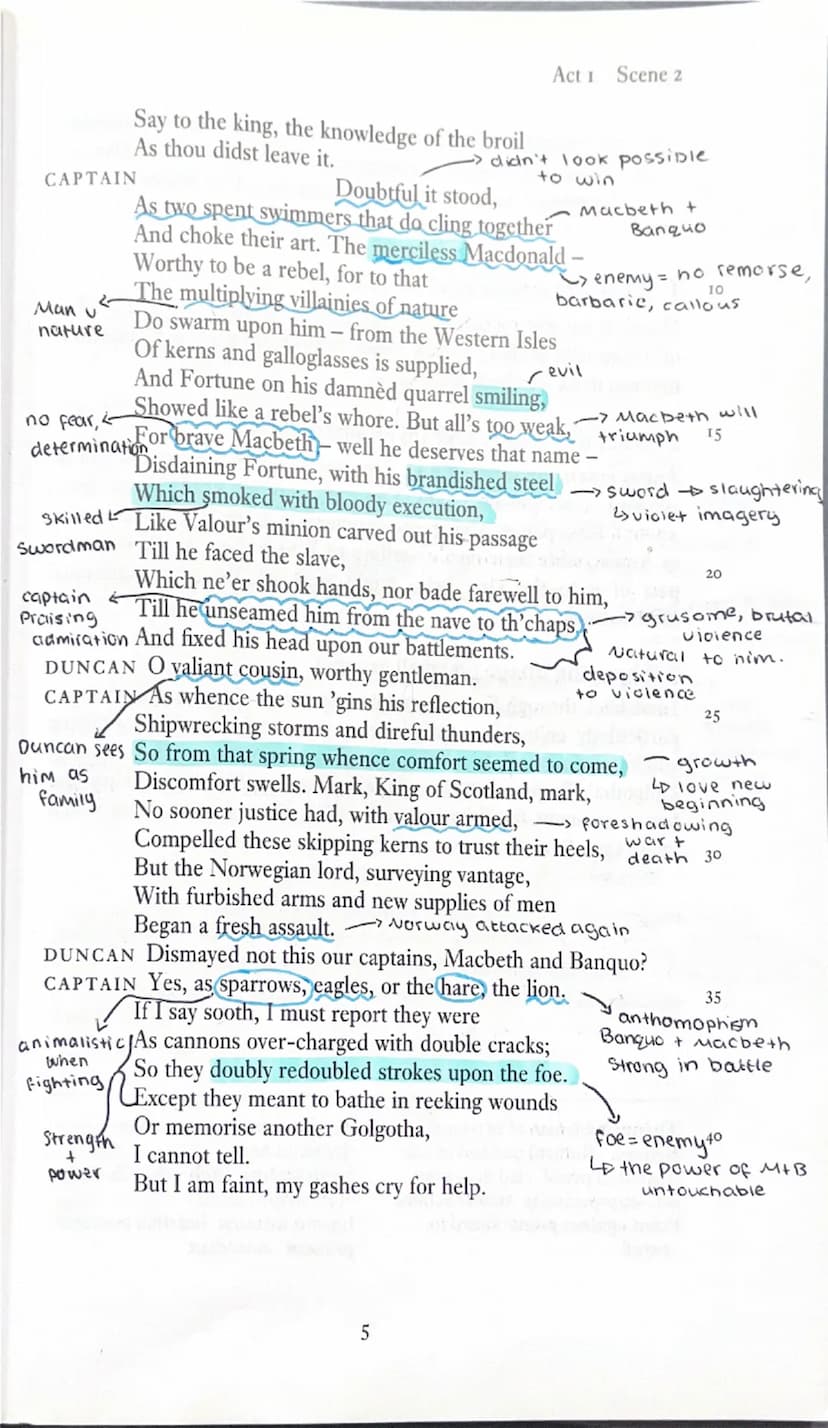 Act 1 Scene 2
Say to the king, the knowledge of the broil
As thou didst leave it.
→ didn't look possible
to win
CAPTAIN
Doubtful it stood,
As two spent swimmers that do cling together
Macbeth +
Banquo
And choke their art. The merciless Macdonald –
Worthy to be a rebel, for to that
↳ enemy = no remorse,
barbaric, callous
10
The multiplying villainies of nature
Man v
nature
Do swarm upon him – from the Western Isles
Of kerns and galloglasses is supplied,
evil
And Fortune on his damnèd quarrel smiling,
Showed like a rebel's whore. But all's too weak,
→ Macbeth will
triumph
15
no fear,
determination
For brave Macbeth – well he deserves that name –
Disdaining Fortune, with his brandished steel
→ sword → slaughtering
↳ violet imagery
Which smoked with bloody execution,
skilled
swordman
Like Valour's minion carved out his passage
Till he faced the slave,
20
Which ne'er shook hands, nor bade farewell to him,
captain
praising
admiration
Till he unseamed him from the nave to th'chaps,
→ grusome, brutal
violence
And fixed his head upon our battlements.
Natural to him.
deposition
to violence
DUNCAN O valiant cousin, worthy gentleman.
CAPTAIN As whence the sun 'gins his reflection,
25
Shipwrecking storms and direful thunders,
Duncan sees
him as
family
So from that spring whence comfort seemed to come,
growth
↳ love new
beginning
Discomfort swells. Mark, King of Scotland, mark,
No sooner justice had, with valour armed,
→ foreshadowing
war +
death
Compelled these skipping kerns to trust their heels,
30
But the Norwegian lord, surveying vantage,
With furbished arms and new supplies of men
Began a fresh assault.
→ Norway attacked again
DUNCAN Dismayed not this our captains, Macbeth and Banquo?
CAPTAIN Yes, as sparrows, eagles, or the hare, the lion.
35
If I say sooth, I must report they were
anthomophism
Banquo + Macbeth
Strong in battle
animalistic
when
fighting
As cannons over-charged with double cracks;
So they doubly redoubled strokes upon the foe.
Except they meant to bathe in reeking wounds
Or memorise another Golgotha,
foe = enemy
40
↳ the power of M+B
untouchable
Strength
+
power
I cannot tell.
But I am faint, my gashes cry for help.
5